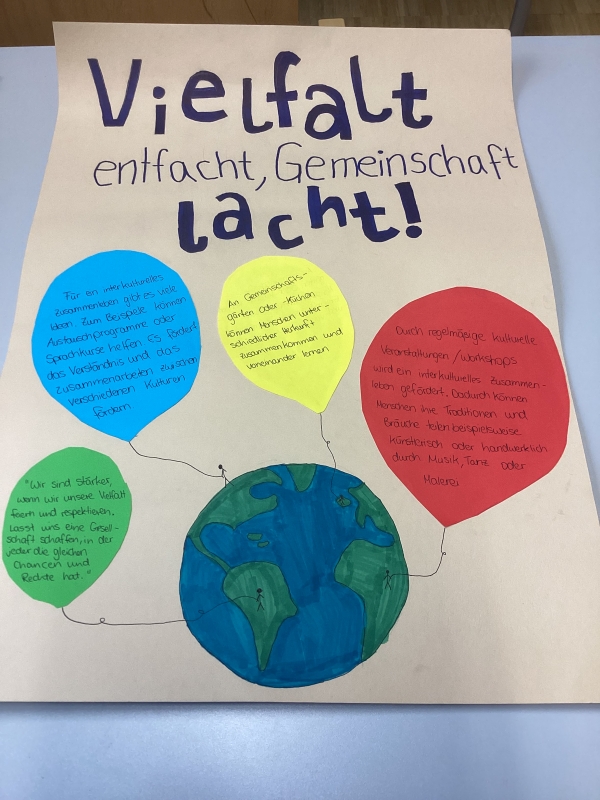 Vielfalt
entfacht, Gemeinschaft
lacht!
Für ein interkulturelles
zusammenleben gibt es viele
Ideen. Zum Beispiele können
Austauschprogramme oder
Sprachkurse helfen. Es fördert
das Verständnis und das
zusammenarbeiten zwischen
verschiedenen Kulturen
fördern.
An Gemeinschafts-
gärten oder -küchen
können Menschen unter-
schiedlicher Herkunft
zusammenkommen und
voneinander lernen
Durch regelmäßige kulturelle
Veranstaltungen / Workshops
wird ein interkulturelles Zusammen-
leben gefördert. Dadurch können
Menschen ihre Traditionen und
Bräuche teilen beispielsweise
künstlerisch oder handwerklich
durch Musik, Tanz oder
Malerei
"Wir sind stärker,
wenn wir unsere Vielfalt
feiern und respektieren.
Lasst uns eine Gesell-
schaft schaffen, in der
jeder die gleichen
Chancen und
Rechte hat."